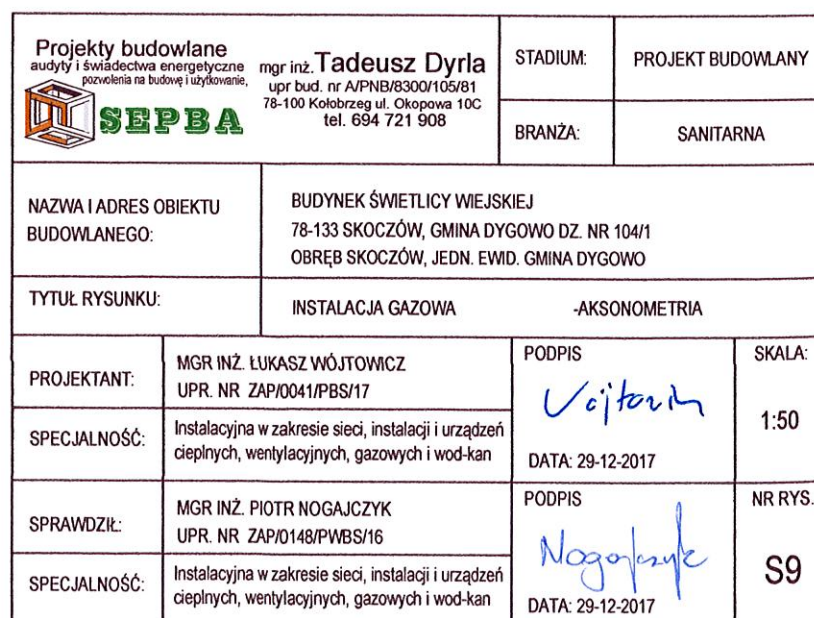 Projekty budowlane
audyty i świadectwa energetyczne
pozwolenia na budowę i użytkowanie,
SEPBA
mgr inż. Tadeusz Dyrla
upr bud. nr A/PNB/8300/105/81
78-100 Kołobrzeg ul. Okopowa 10C
tel. 694 721 908
STADIUM: PROJEKT BUDOWLANY
BRANŻA: SANITARNA
NAZWA I ADRES OBIEKTU
BUDOWLANEGO:
BUDYNEK ŚWIETLICY WIEJSKIEJ
78-133 SKOCZÓW, GMINA DYGOWO DZ. NR 104/1
OBRĘB SKOCZÓW, JEDN. EWID. GMINA DYGOWO
TYTUŁ RYSUNKU: INSTALACJA GAZOWA -AKSONOMETRIA
PROJEKTANT:
MGR INŻ. ŁUKASZ WÓJTOWICZ
UPR. NR ZAP/0041/PBS/17
SPECJALNOŚĆ:
Instalacyjna w zakresie sieci, instalacji i urządzeń
cieplnych, wentylacyjnych, gazowych i wod-kan
PODPIS
DATA: 29-12-2017
SKALA:
1:50
SPRAWDZIŁ:
MGR INŻ. PIOTR NOGAJCZYK
UPR. NR ZAP/0148/PWBS/16
SPECJALNOŚĆ:
Instalacyjna w zakresie sieci, instalacji i urządzeń
cieplnych, wentylacyjnych, gazowych i wod-kan
PODPIS
Nogajczyk
DATA: 29-12-2017
NR RYS.
S9